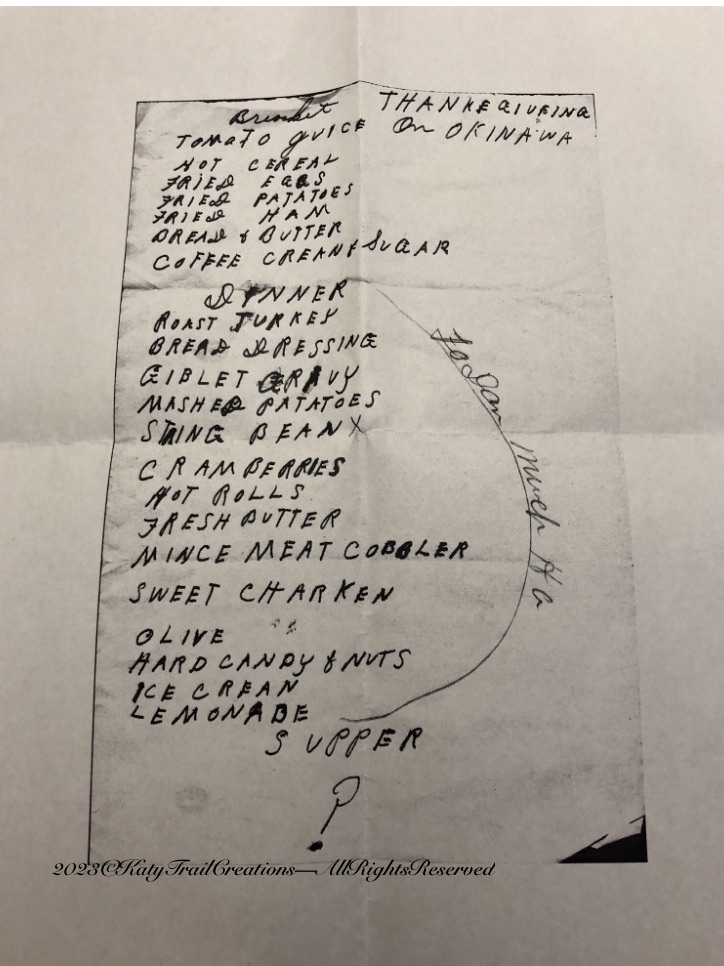 THANKEGIVEING
on OKINAWA
TOMATO gUICE
HOT CEREAL
FRIED EGGS
FRIED PATATOES
FRIED HAM
BREAD & BUTTER
COFFEE CREAN & SUGAR
DINNER
ROAST TURKEY
BREAD DRESSING
GIBLET GRAVY
MASHED PATATOES
STRING BEAN
CRAMBERRIES
HOT ROLLS
FRESH BUTTER
MINCE MEAT COBBLER
SWEET CHARKEN
OLIVE
HARD CANDY & NUTS
ICE CREAN
LEMONADE
much
SUPPER
?
2023©KatyTrailCreations—AllRightsReserved